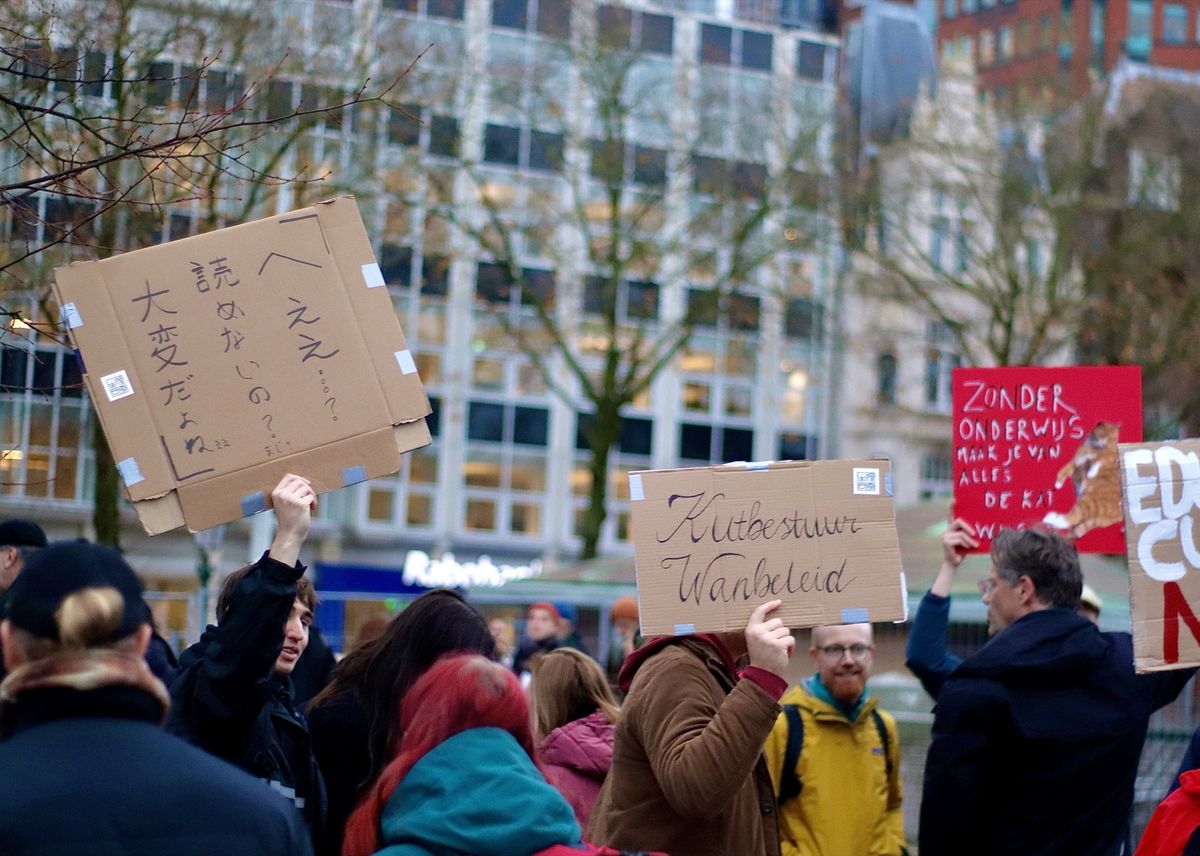 「へええ…?
読めないの?まじ
大変だよね」
Kutbestuur
Wanbeleid
ZONDER
ONDERWIJS
MAAK JE VAN
ALLES
DE KAT
Rabobank